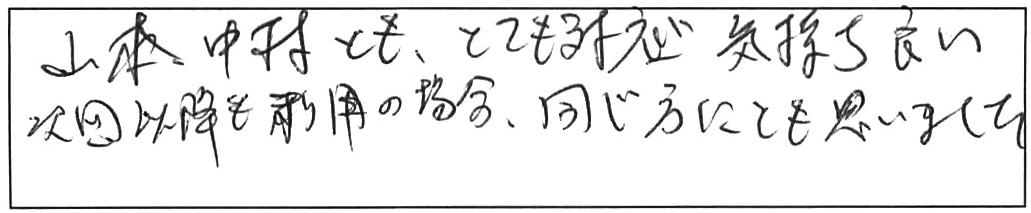 山本、中村とも、とても対応 気持ち良い
次回以降も利用の場合、同じ方にとも思いました